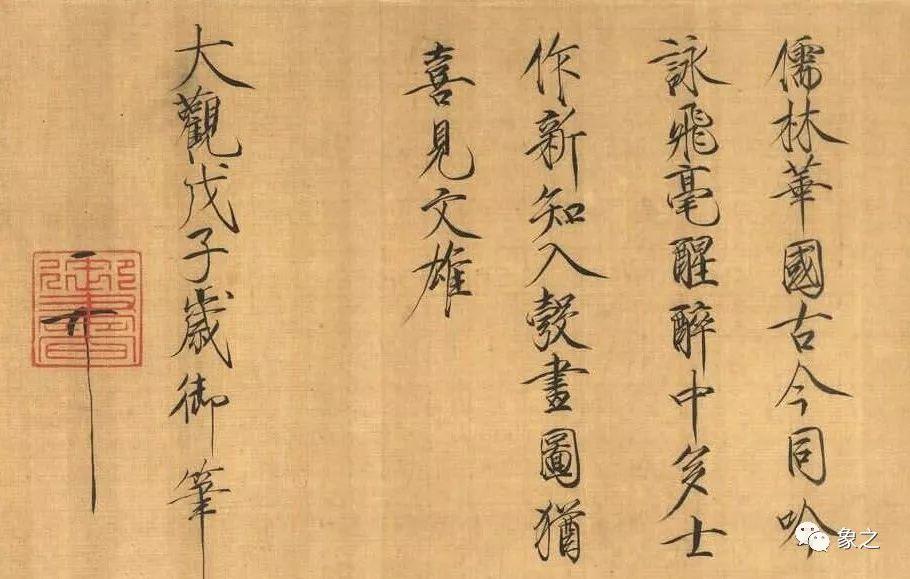 儒林華國古今同吟
詠飛毫醒醉中多士
作新知入彀畫圖猶
喜見文雄
大觀戊子歲御筆
御書
象之